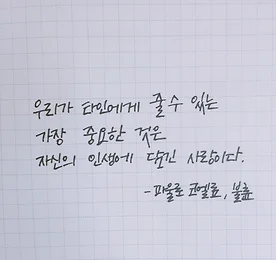 우리가 타인에게 줄 수 있는
가장 중요한 것은
자신의 인생에 담긴 사랑이다.
- 파울로 코엘료, 불륜